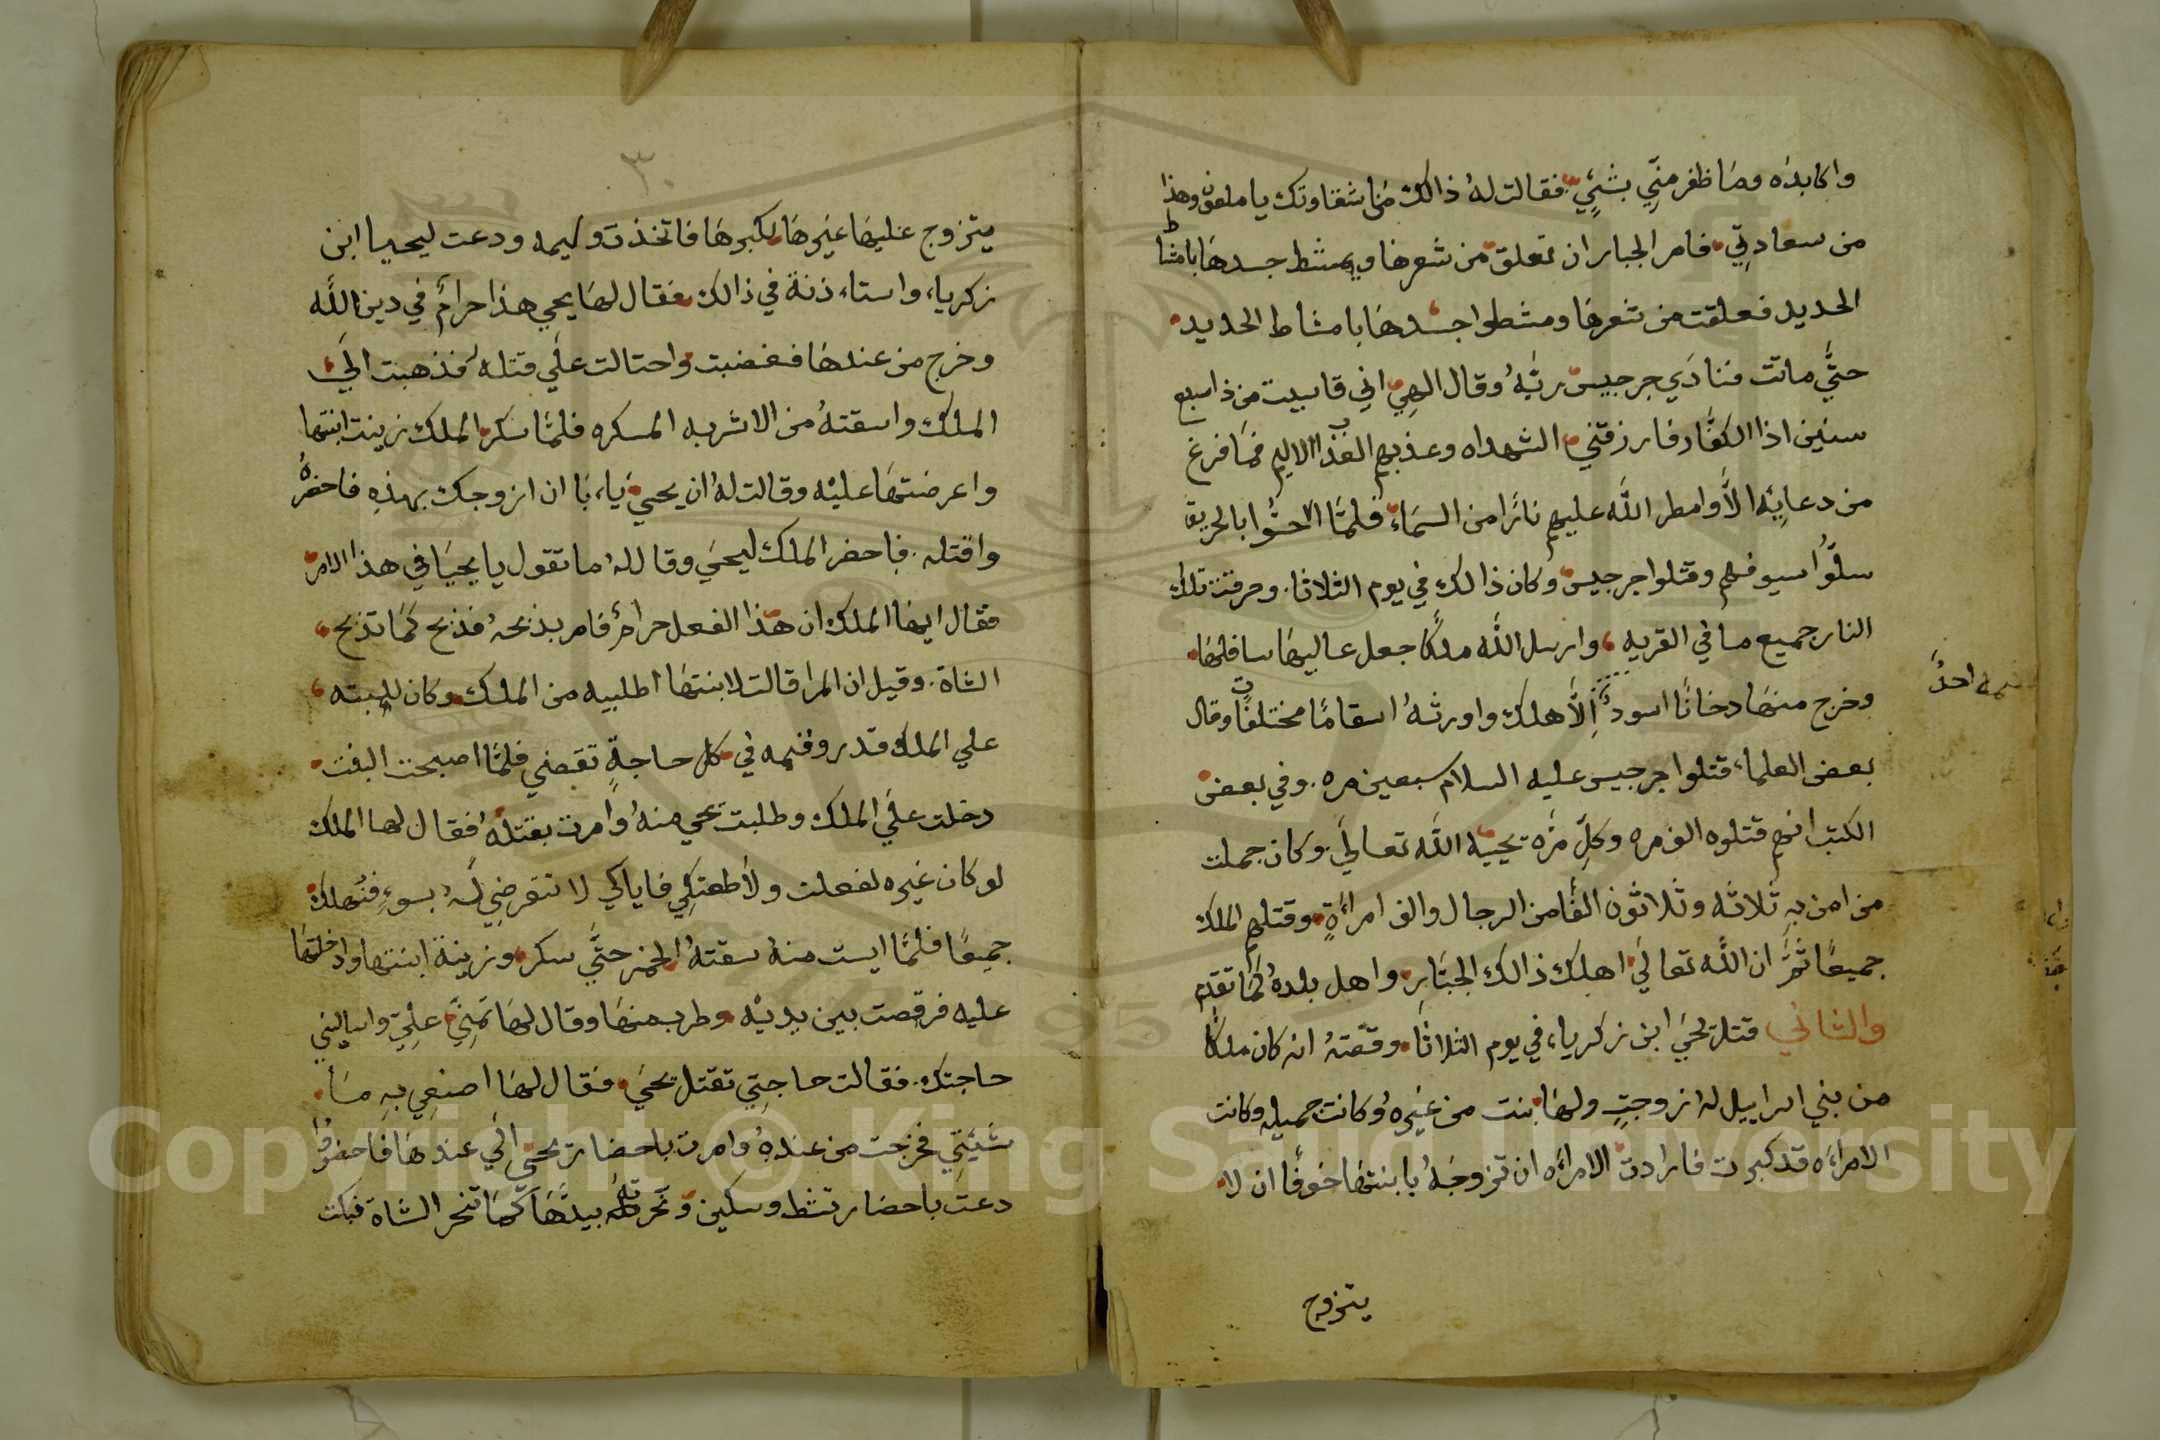 واكابده وما ظفر منّي بشيء فقالت له ذالك من شقاوتك يا ملعون وهذا
من سعادتي فامر الجبار ان تعلق من شعرها ويمشط جسدها بامشاط
الحديد فعلقت من شعرها ومشطوا جسدها بامشاط الحديد
حتّي ماتت فنادي جرجيس ربّه وقال الهي اني قاسيت من ذا سبع
سنين اذا الكفّار فارزقني الشهداه وعذبهم العذاب الاليم فما فرغ
من دعايئه الاّ وامطر اللّه عليهم نارا من السماء فلمّا احسّوا بالحريق
سلّوا سيوفهم وقتلوا جرجيس وكان ذالك في يوم الثلاثا وحرقت تلك
النار جميع ما في القريه وارسل اللّه ملكًا جعل عاليها سافلها
وخرج منها دخانًا اسود الاّ هلك واورثه اسقامًا مختلفًات وقال
شمه احدٌ
بعض العلماء قتلوا جرجيس عليه السلام سبعين مره وفي بعض
الكتب انهم قتلوه الف مره وكلّ مرّه يحييه اللّه تعالي وكان جملت
من امن به ثلاثه وثلاثون الفًا من الرجال والف امراءةٍ وقتلهم الملك
جميعًا ثمّ ان اللّه تعالي اهلك ذالك الجبّار واهل بلده كما تقدم
والثاني قتل يحيَ ابن زكرياء في يوم الثلاثا وقصّته انه كان ملكًا
من بني اسراييل له زوجتٍ ولها بنت من غيره وكانت جميله وكانت
الامراءه قد كبرت فارادت الامراءه ان تزوجه بابنتها خوفًا ان لا
يتزوج
٣٠
يتزوج عليها غيرها لكبرها فاتخذت وليمه ودعت ليحيا ابن
زكرياء واستاءذنة في ذالك فقال لها يحي هذا حرامٌ في دين اللّه
وخرج من عندها فغضبت واحتالت علي قتله فذهبت الي
الملك واسقته من الاشربه المسكره فلمّا سكر الملك زينت ابنتها
واعرضتها عليه وقالت له ان يحيي ياءبا ان ازوجك بهذه فاحضره
واقتله فاحضر الملك ليحي وقال له ما تقول يا يحيا في هذا الامر
فقال ايها الملك ان هذا الفعل حرامٌ فامر بذبحه فذبح كما تذبح
الشاة وقيل ان المرا قالت لابنتها اطلبيه من الملك وكان للبنته
علي الملك قدر وقيمه في كل حاجةٍ تقضي فلمّا اصبحت البنت
دخلت علي الملك وطلبت يحي منه وامرت بقتله فقال لها الملك
لو كان غيره لفعلت ولأطعتكي فاياكي لا تتعرضي له بسوءٍ فنُهلك
جميعًا فلمّا ايست منه سقته الخمر حتّي سكر وزينة ابنتها وادخلتها
عليه فرقصت بين يديه وطرب منها وقال لها تمنّي عليّ واساليني
حاجتك فقالت حاجتي تقتل يحيَ فقال لها اصنعي به ما
شيئتي فخرجت من عنده وامرت باحضار يحيي الي عندها فاحضروا
دعت باحضار تشط وسكين ونحرته بيدّها كما تنحر الشاة فبكت
Copyright © King Saud University